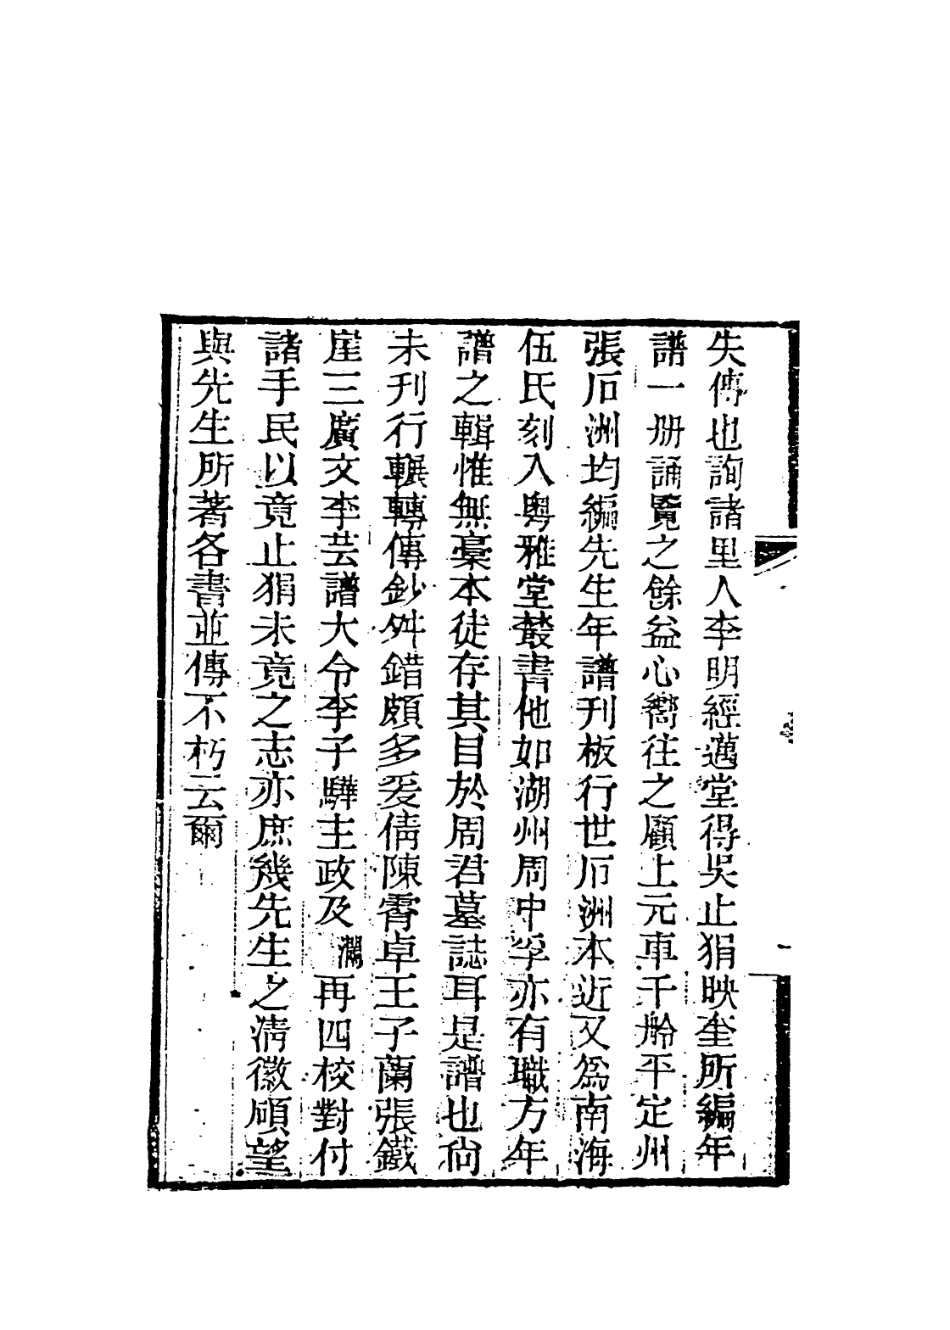 失傳也詢諸里人李明經邁堂得吳止狷映奎所編年
譜一册誦覽之餘益心嚮往之顧上元車千舲平定州
張石洲均編先生年譜刊板行世石洲本近又爲南海
伍氏刻入粤雅堂叢書他如湖州周中孚亦有職方年
譜之輯惟無稾本徒存其目於周君墓誌耳是譜也尙
未刊行輾轉傳鈔舛錯頗多爰倩陳霱卓王子蘭張鐵
崖三廣文李芸譜大令李子驊主政及瀾再四校對付
諸手民以竟止狷未竟之志亦庶幾先生之淸徽碩望
與先生所著各書並傳不朽云爾